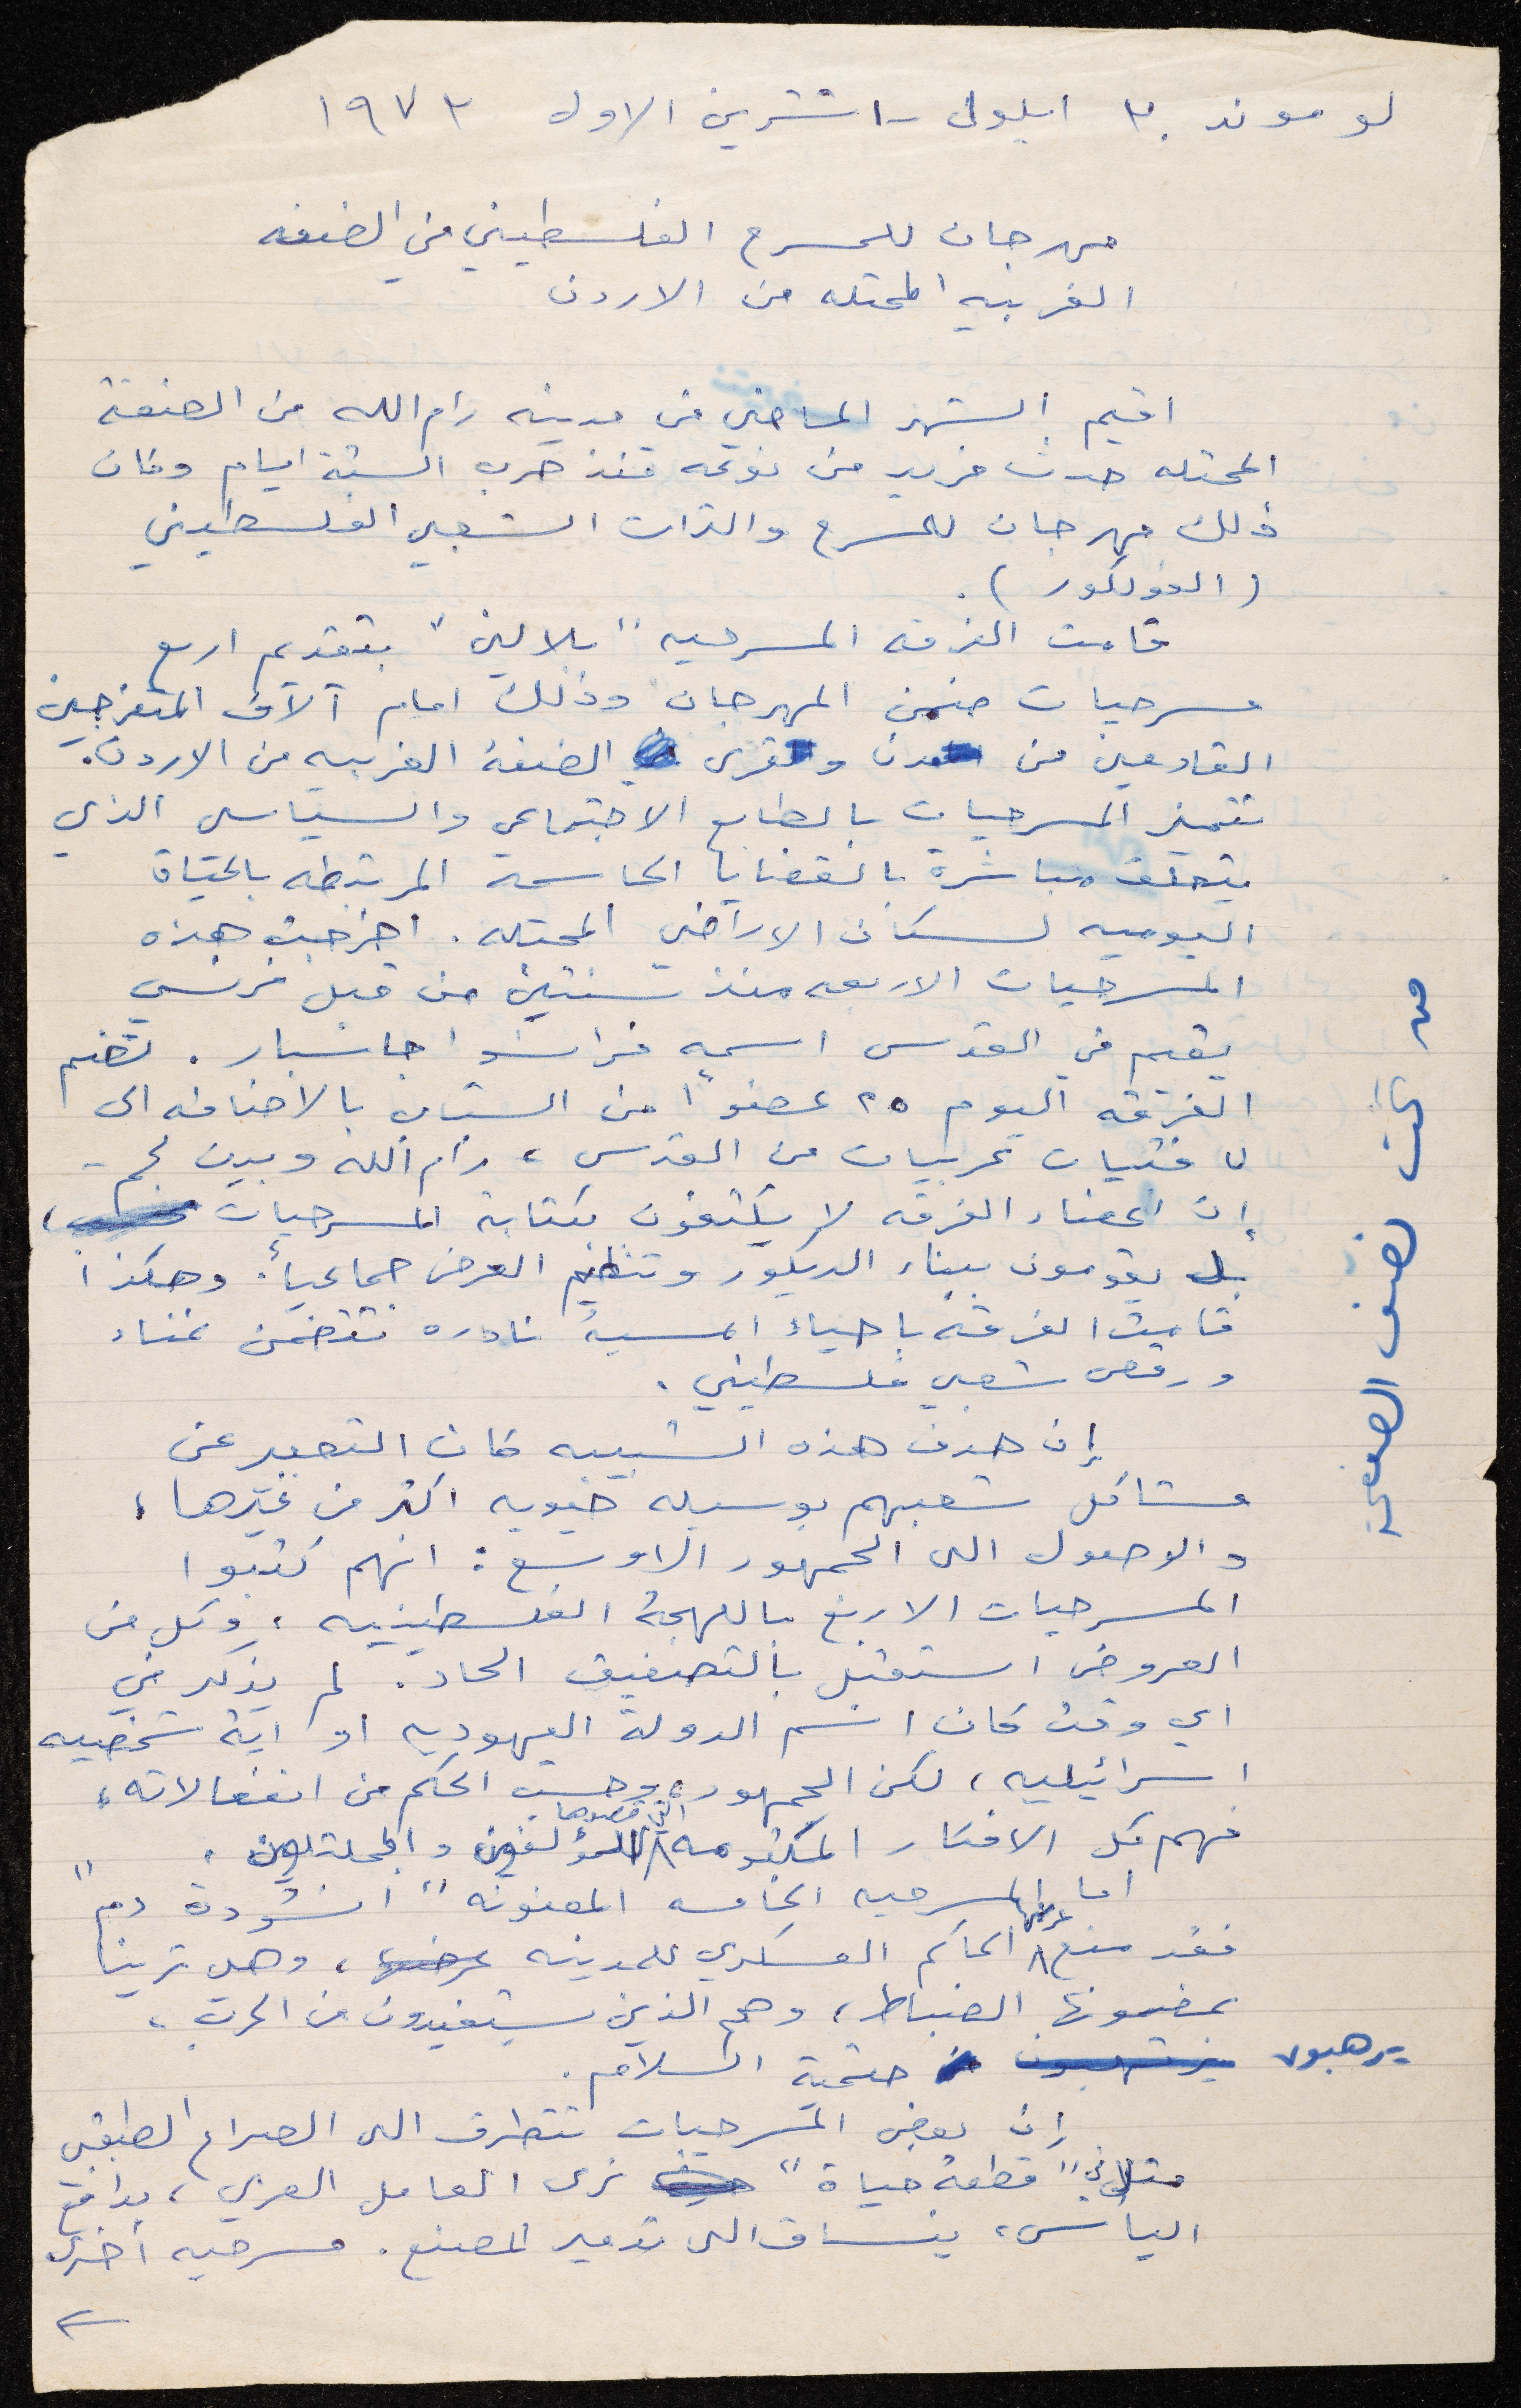 لوموند ٣٠ ايلول - ١ تشرين الاول ١٩٧٣
مهرجان للمسرح الفلسطيني في الضفه
الغربيه المحتله من الاردن
اقيم الشهر الماضي في مدينه رام الله من الضفة
المحتله حدث فريد من نوعه منذ حرب الستة ايام وكان
ذلك مهرجان للمسرح والتراث الشعبي الفلسطيني
(الفولكور).
قامت الفرقه المسرحيه "بلالين" بتقديم اربع
مسرحيات ضمن المهرجان وذلك امام آلاف المتفرجين
القادمين من مدن وقرى الضفة الغربيه من الاردن.
تتميز المسرحيات بالطابع الاجتماعي والسياسي الذي
يتعلق مباشرة بالقضايا الحاسمة المرتبطه بالحياة
اليوميه لسكان الاراضي المحتله. اخرجت هذه
المسرحيات الاربعه منذ سنتين من قبل فرنسي
يقيم في القدس اسمه فرانسوا جاسبار. تضم
الفرقه اليوم ٢٥ عضواً من الشباب بالاضافه الى
٧ فتيات عربيات من القدس، رام الله وبيت لحم -
إن اعضاء الفرقه لا يكتفون بكتابة المسرحيات،
بل يقومون ببناء الديكور وتنظيم العرض جماعياً. وهكذا
قامت الفرقه باحياء امسية نادره تتضمن غناء
ورقص شعبي فلسطيني.
إن هدف هذه الشبيبه كان التعبير عن
مشاكل شعبهم بوسيله حيويه اكثر من غيرها،
والوصول الى الجمهور الاوسع: انهم كتبوا
المسرحيات الاربع باللهجة الفلسطينيه، وكل من
العروض استقبل بالتصفيق الحاد. لم يذكر في
اي وقت كان اسم الدولة اليهوديه او اية شخصيه
اسرائيليه، لكن الجمهور، وحسب الحكم من انفعالاته،
فهم كل الافكار المكتومه التي قصدها المؤلفون والممثلون.
اما المسرحيه الخامسه المعنونه "انشودة دم"
فقد منع عرضها الحاكم العسكري للمدينه، وهي ترينا
بمضمونها الضباط، وهم الذين يستفيدون من الحرب،
يرهبون حتمية السلام.
إن بعض المسرحيات تتطرق الى الصراع الطبقي
مثلا في "قطعة حياة" نرى العامل العربي، بدافع
اليأس، ينساق الى تدمير المصنع. مسرحيه اخرى
من تحت نصف الصفحة